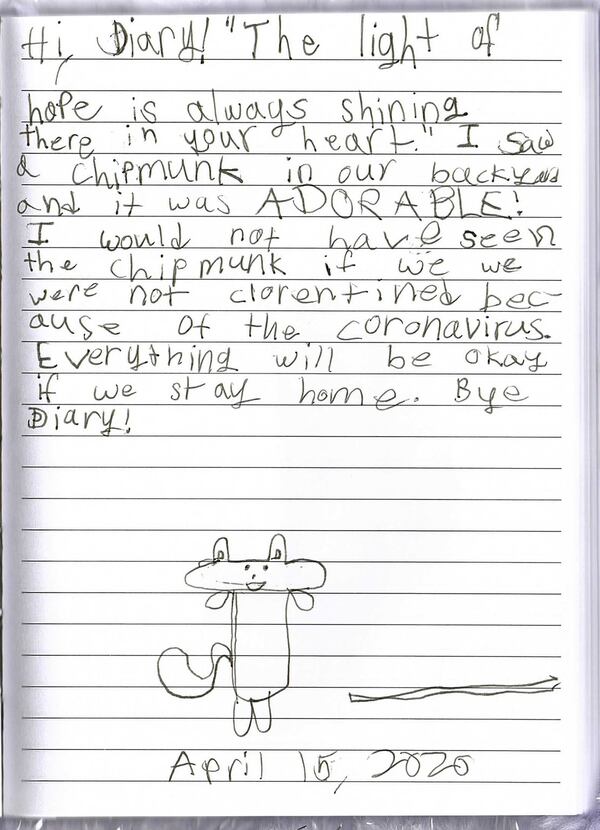 Hi, Diary! "The light of
hope is always shining
there in your heart." I saw
a chipmunk in our backyard
and it was ADORABLE!
I would not have seen
the chipmunk if we we
were not clorentined bec-
ause of the coronavirus.
Everything will be okay
if we stay home. Bye
Diary!
April 15, 2020